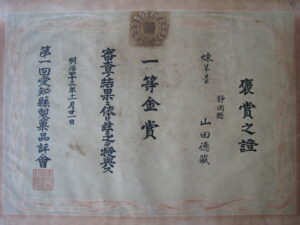 褒賞之證
煉羊羹
静岡縣
山田德藏
一等金賞
審査ノ結果ニ依リ茲ニ之ヲ授與ス
明治四十三年十一月廿一日
第一回愛知縣製菓品評會